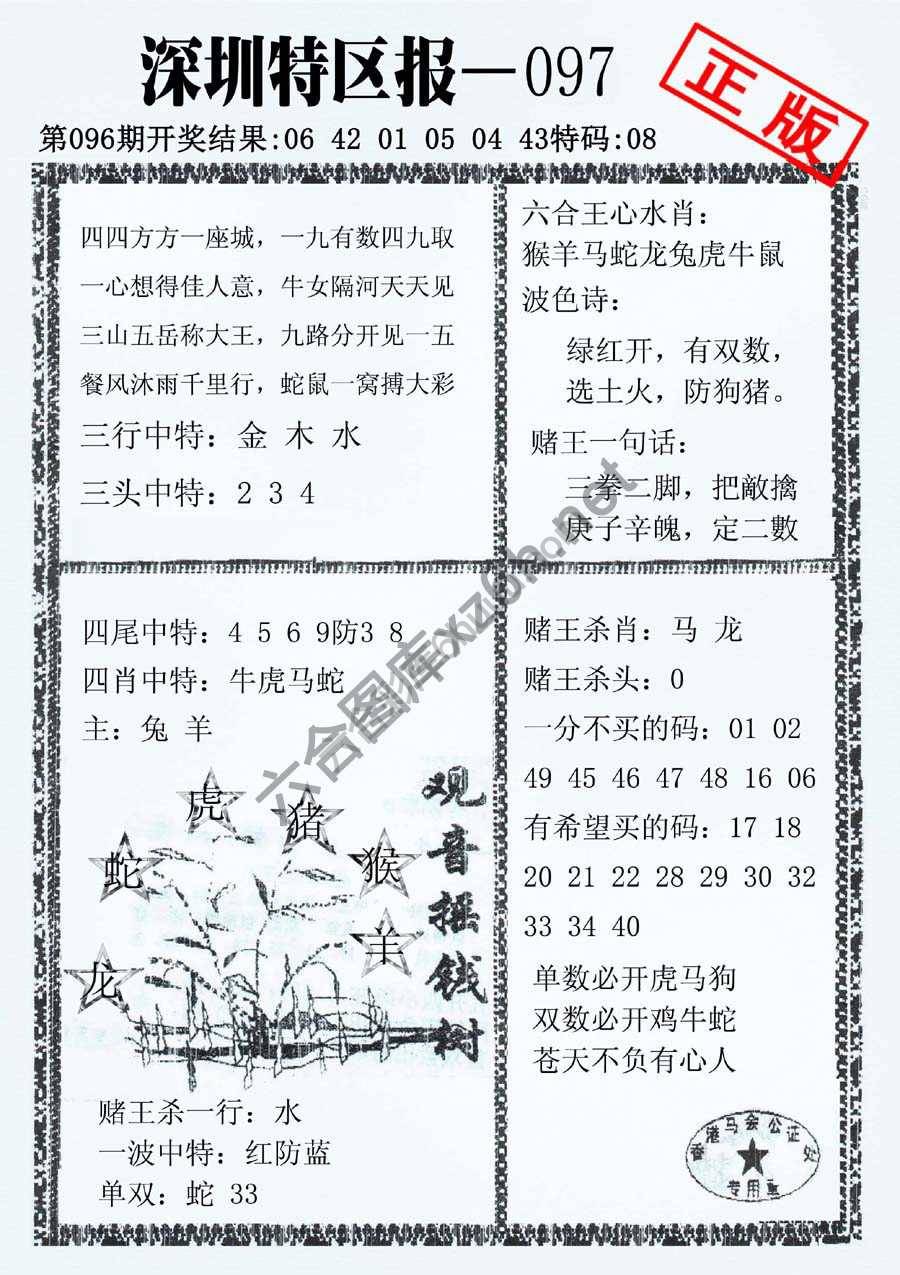 深圳特区报—097
正版
第096期开奖结果:06 42 01 05 04 43特码:08
四四方方一座城，一九有数四九取
一心想得佳人意，牛女隔河天天见
三山五岳称大王，九路分开见一五
餐风沐雨千里行，蛇鼠一窝搏大彩
三行中特：金 木 水
三头中特：2 3 4
六合王心水肖：
猴羊马蛇龙兔虎牛鼠
波色诗：
绿红开，有双数，
选土火，防狗猪。
赌王一句话：
三拳二脚，把敵擒
庚子辛魄，定二數
四尾中特：4 5 6 9防3 8
四肖中特：牛虎马蛇
主：兔 羊
虎
猪
蛇
猴
羊
龙
观音摇钱树
赌王杀一行：水
一波中特：红防蓝
单双：蛇 33
赌王杀肖：马 龙
赌王杀头：0
一分不买的码：01 02
49 45 46 47 48 16 06
有希望买的码：17 18
20 21 22 28 29 30 32
33 34 40
单数必开虎马狗
双数必开鸡牛蛇
苍天不负有心人
香港马会公证处
专用章
六合图库xz6h.net